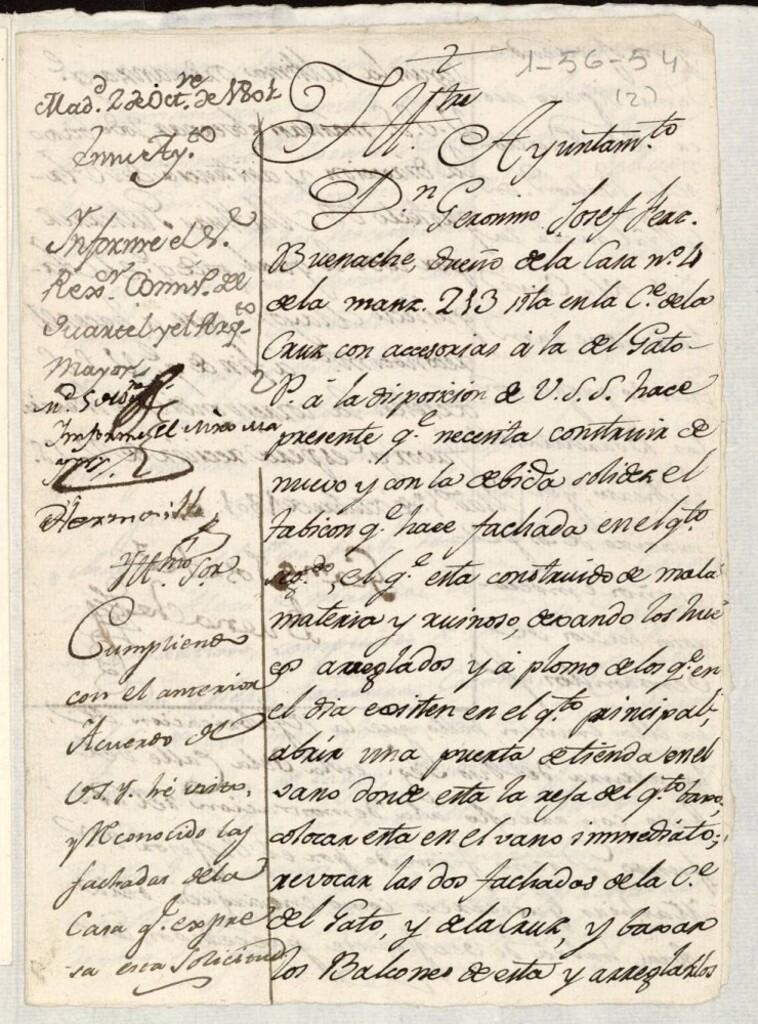 1-56-54
(2)
2
Mad.d 2 de Oct.re de 1801
En su Ay.to
Informe el S.r
Rex.or Comis.o del
Quartel y el Arq.to
Mayor
M.d 5 de
Informe el
Hermosilla
Ill.mo S.or
Cumpliendo
con el anterior
Acuerdo de
V.S.Y. hé visto,
y Reconocido las
fachadas de la
Casa q.e expre
sa esta Solicitud
Ill.tre Ayuntam.to
D.n Geronimo Josef Ferz.
Buenache, dueño de la Casa n.o 4
de la manz. 213 sita en la C.e de la
Cruz con accesorias à la del Gato
P. à la disposicion de V.S.S. hace
presente q.e necesita construir de
nuevo y con la debida solidez el
tabicon q.e hace fachada en el q.to
seg.do, el q.e esta construido de mala
materia y ruinoso, dexando los hue
cos arreglados y à plomo de los q.e en
el dia existen en el q.to principal;
abrir una puerta de tienda en el
vano donde esta la rexa del q.to baxo,
colocar esta en el vano immediato;
revocar las dos fachadas de la C.e
del Gato, y de la Cruz, y baxar
los Balcones de esta y arreglarlos